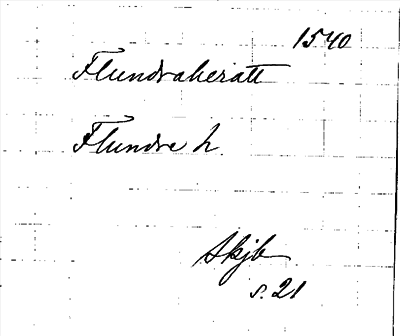 1540
Flundraheratt
Flundre h.
Skjb
s. 21